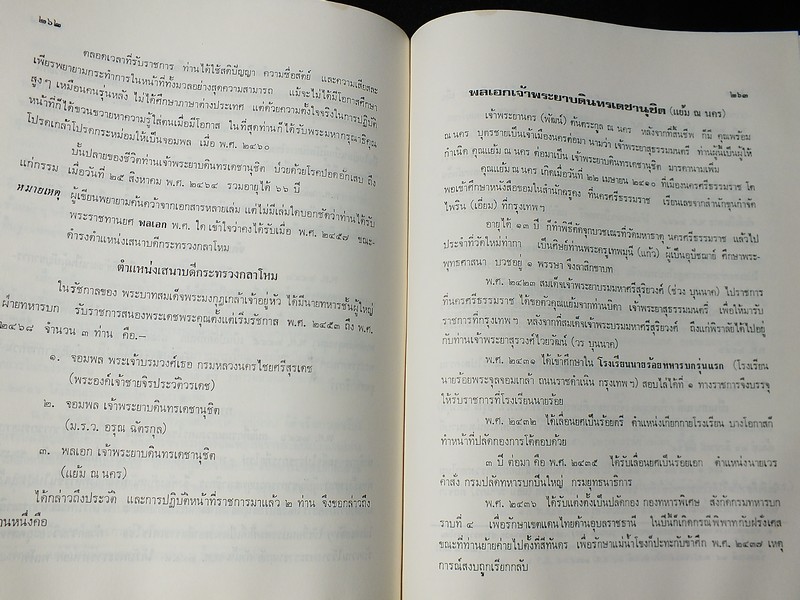 ๒๖๒
ตลอดเวลาที่รับราชการ ท่านได้ใช้สติปัญญา ความซื่อสัตย์ และความเสียสละ
เพียรพยายามกระทำการในหน้าที่ทั้งมวลอย่างสุดความสามารถ แม้จะไม่ได้มีโอกาสศึกษา
สูงๆ เหมือนคนรุ่นหลัง ไม่ได้ศึกษาภาษาต่างประเทศ แต่ด้วยความตั้งใจจริงในการปฏิบัติ
หน้าที่ก็ได้ขวนขวายหาความรู้ใส่ตนเมื่อมีโอกาส ในที่สุดท่านก็ได้รับพระมหากรุณาธิคุณ
โปรดเกล้าโปรดกระหม่อมให้เป็นจอมพล เมื่อ พ.ศ. ๒๔๖๐
บั้นปลายของชีวิตท่านเจ้าพระยาบดินทรเดชานุชิต ป่วยด้วยโรคปอดอักเสบ ถึง
แก่กรรม เมื่อวันที่ ๒๕ สิงหาคม พ.ศ. ๒๔๖๔ รวมอายุได้ ๖๖ ปี
หมายเหตุ ผู้เขียนพยายามค้นคว้าจากเอกสารหลายเล่ม แต่ไม่มีเล่มใดบอกชัดว่าท่านได้รับ
พระราชทานยศ พลเอก พ.ศ. ใด เข้าใจว่าคงได้รับเมื่อ พ.ศ. ๒๔๕๗ ขณะ-
ดำรงตำแหน่งเสนาบดีกระทรวงกลาโหม
ตำแหน่งเสนาบดีกระทรวงกลาโหม
ในรัชกาลของ พระบาทสมเด็จพระมงกุฎเกล้าเจ้าอยู่หัว ได้มีนายทหารชั้นผู้ใหญ่
ฝ่ายทหารบก รับราชการสนองพระเดชพระคุณตั้งแต่เริ่มรัชกาล พ.ศ. ๒๔๕๓ ถึง พ.ศ.
๒๔๖๘ จำนวน ๓ ท่าน คือ.–
๑. จอมพล พระเจ้าบรมวงศ์เธอ กรมหลวงนครไชยศรีสุรเดช
(พระองค์เจ้าชายจิรประวัติวรเดช)
๒. จอมพล เจ้าพระยาบดินทรเดชานุชิต
(ม.ร.ว. อรุณ ฉัตรกุล)
๓. พลเอก เจ้าพระยาบดินทรเดชานุชิต
(แย้ม ณ นคร)
ได้กล่าวถึงประวัติ และการปฏิบัติหน้าที่ราชการมาแล้ว ๒ ท่าน จึงขอกล่าวถึง
านหนึ่งคือ
๒๖๓
พลเอกเจ้าพระยาบดินทรเดชานุชิต (แย้ม ณ นคร)
เจ้าพระยานคร (พัฒน์) ต้นตระกูล ณ นคร หลังจากที่สิ้นชีพ ก็มี คุณพร้อม
ณ นคร บุตรชายเป็นเจ้าเมืองนครต่อมา นามว่า เจ้าพระยาสุธรรมมนตรี ท่านผู้นี้เป็นผู้ให้
กำเนิด คุณแย้ม ณ นคร ต่อมาเป็น เจ้าพระยาบดินทรเดชานุชิต มารดานามเพิ่ม
คุณแย้ม ณ นคร เกิดเมื่อวันที่ ๒๒ เมษายน ๒๔๑๐ ที่เมืองนครศรีธรรมราช โต
พอเข้าศึกษาหนังสือขอมในสำนักครูคง ที่นครศรีธรรมราช เรียนเลขจากสำนักขุนกำจัด
ไพริน (เอี่ยม) ที่กรุงเทพฯ
อายุได้ ๑๓ ปี ก็ทำพิธีตัดจุกบวชเณรที่วัดมหาธาตุ นครศรีธรรมราช แล้วไป
ประจำที่วัดใหม่ท่ากา เป็นศิษย์ท่านพระครูเทพมุนี (แก้ว) ผู้เป็นอุปัชฌาย์ ศึกษาพระ-
พุทธศาสนา บวชอยู่ ๑ พรรษา จึงลาสิกขาบท
พ.ศ. ๒๔๒๓ สมเด็จเจ้าพระยาบรมมหาศรีสุริยวงศ์ (ช่วง บุนนาค) ไปราชการ
ที่นครศรีธรรมราช ได้ขอตัวคุณแย้มจากท่านบิดา เจ้าพระยาสุธรรมมนตรี เพื่อให้มารับ
ราชการที่กรุงเทพฯ หลังจากที่สมเด็จเจ้าพระยาบรมมหาศรีสุริยวงศ์ ถึงแก่พิราลัยได้ไปอยู่
กับท่านเจ้าพระยาสุรวงศ์ไวยวัฒน์ (วร บุนนาค)
พ.ศ. ๒๔๓๑ ได้เข้าศึกษาใน โรงเรียนนายร้อยทหารบกรุ่นแรก (โรงเรียน
นายร้อยพระจุลจอมเกล้า ถนนราชดำเนิน กรุงเทพฯ) สอบไล่ได้ที่ ๑ ทางราชการจึงบรรจุ
ให้รับราชการที่โรงเรียนนายร้อย
พ.ศ. ๒๔๓๒ ได้เลื่อนยศเป็นร้อยตรี ตำแหน่งเกียกกายโรงเรียน บางโอกาสก็
ทำหน้าที่ปลัดกองการโต้ตอบด้วย
๓ ปี ต่อมา คือ พ.ศ. ๒๔๓๕ ได้รับเลื่อนยศเป็นร้อยเอก ตำแหน่งนายเวร
คำสั่ง กรมปลัดทหารบกปืนใหญ่ กรมยุทธนาธิการ
พ.ศ. ๒๔๓๖ ได้รับแต่งตั้งเป็นปลัดกอง กองทหารพิเศษ สังกัดกรมทหารบก
ราบที่ ๔ เพื่อรักษาเขตแดนไทยด้านอุบลราชธานี ในปีนี้ก็เกิดกรณีพิพาทกับฝรั่งเศส
ขณะที่ท่านย้ายค่ายไปตั้งที่สีทันดร เพื่อรักษาแม่น้ำโขงก็ปะทะกับข้าศึก พ.ศ. ๒๔๓๗ เหตุ
การณ์สงบถูกเรียกกลับ